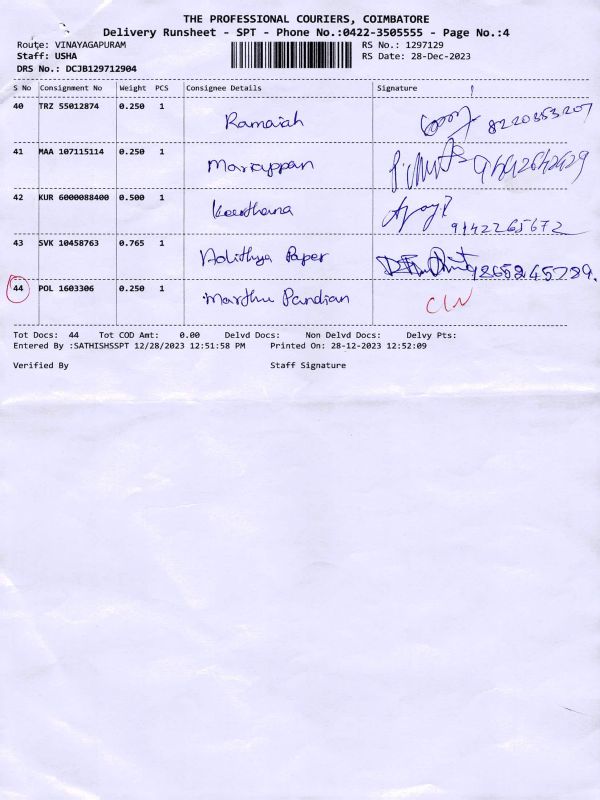 THE PROFESSIONAL COURIERS, COIMBATORE
Delivery Runsheet - SPT - Phone No.:0422-3505555 - Page No.:4
Route: VINAYAGAPURAM RS No.: 1297129
Staff: USHA RS Date: 28-Dec-2023
DRS No.: DCJB129712904
S No Consignment No Weight PCS Consignee Details Signature
40 TRZ 55012874 0.250 1 Ramaiah 8220353207
41 MAA 107115114 0.250 1 Mariappan
42 KUR 6000088400 0.500 1 Keerthana 9142265672
43 SVK 10458763 0.765 1 Adithya Paper 9265245789.
44 POL 1603306 0.250 1 Marthu Pandian CIN
Tot Docs: 44 Tot COD Amt: 0.00 Delvd Docs: Non Delvd Docs: Delvy Pts:
Entered By :SATHISHSSPT 12/28/2023 12:51:58 PM Printed On: 28-12-2023 12:52:09
Verified By Staff Signature